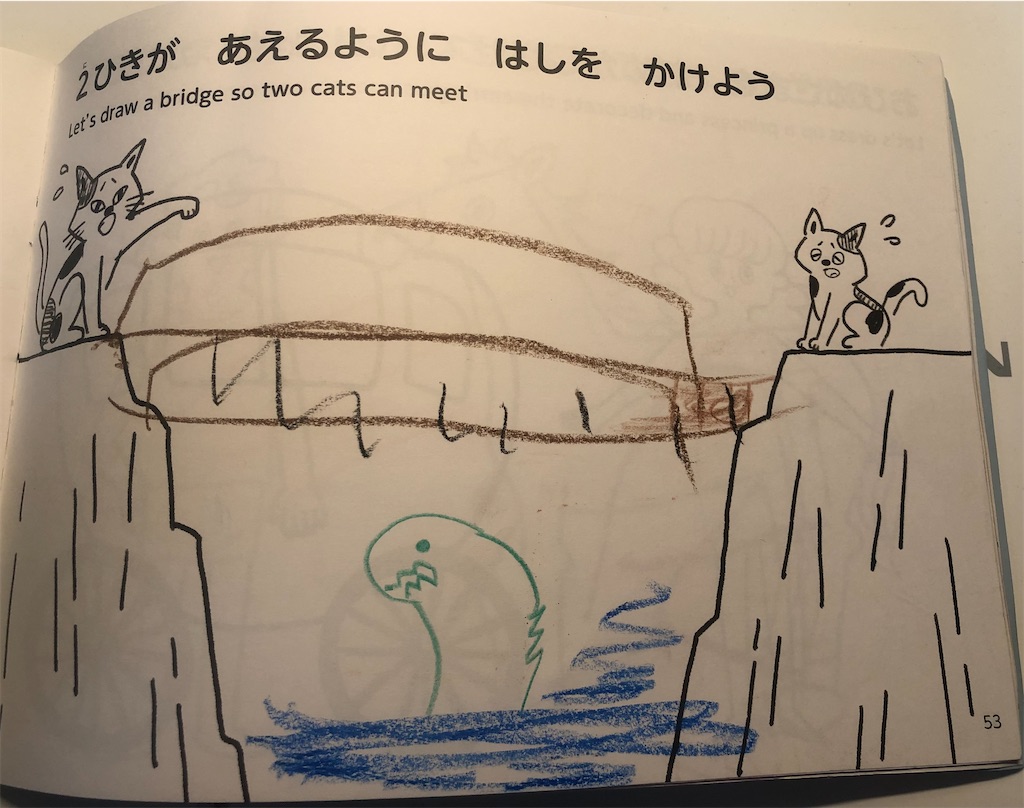 2ひきが あえるように はしを かけよう
Let's draw a bridge so two cats can meet
53